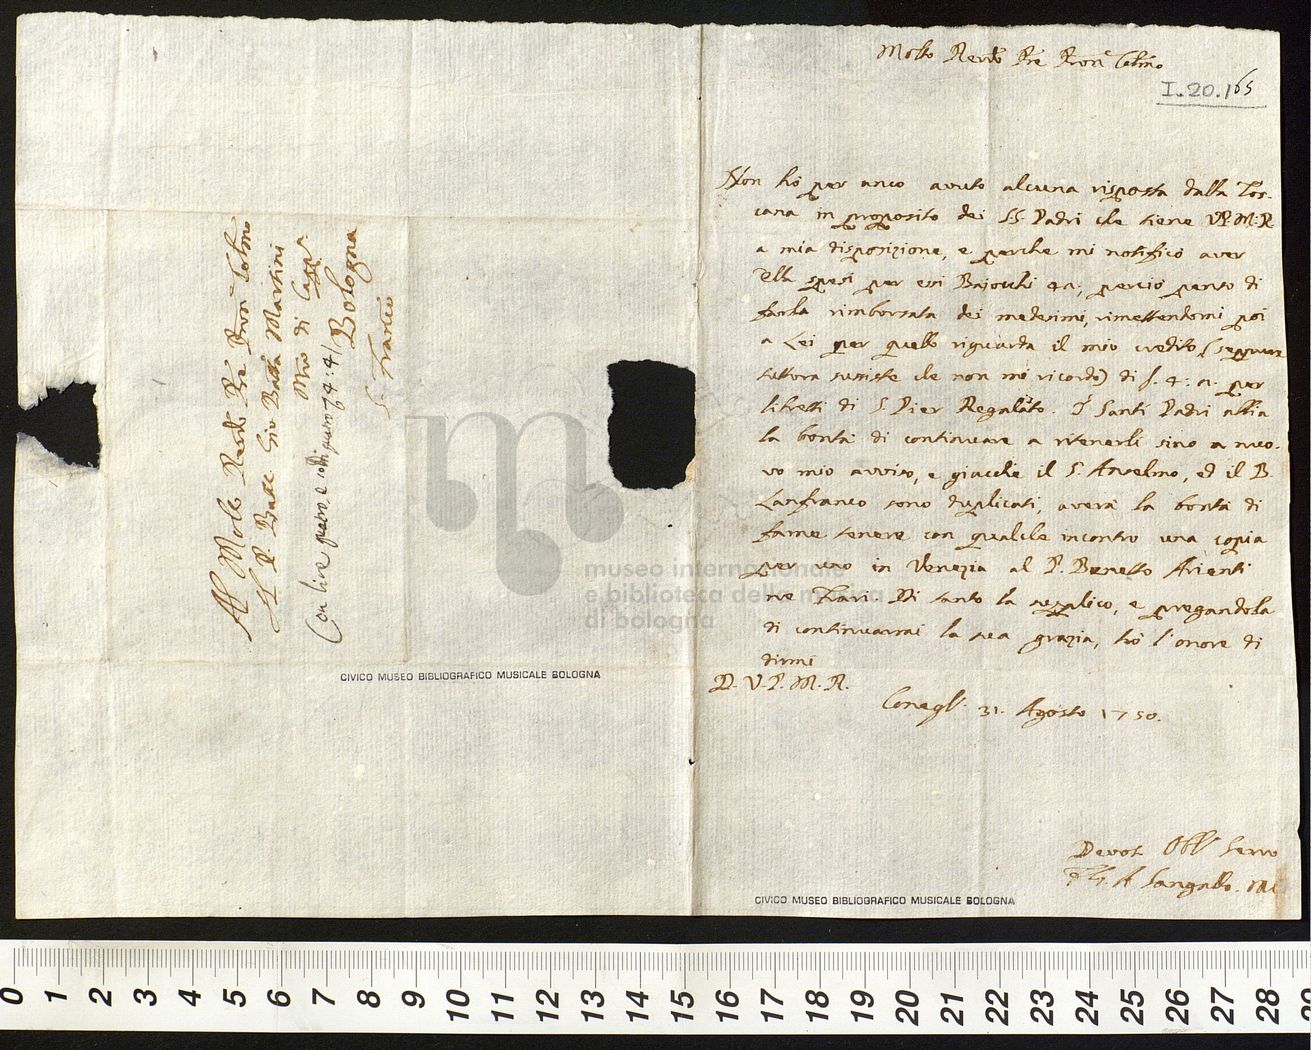 Molto Revdo Pre Pron Colmo
I.20.165
Non hò per anco avuto alcuna risposta dalla Tos-
cana in proposito dei SS. Padri che tiene V.P.M.R.
a mia disposizione, e perche mi notificò aver
Ella spesi per essi Bajocchi 42, perciò penso di
farla rimborsata dei medesimi, rimettendomi poi
a Lei per quello riguarda il mio credito (seppure
tuttora sussiste che non mi ricordo) di per
libretti di S. Pier Regalato. I Santi Padri abbia
la bontà di continuare a ritenerli sino a nuo-
vo mio avviso, e giacche il S. Anselmo, ed il B.
Lanfranco sono duplicati, averà la bontà di
farne tenere con qualche incontro una copia
per uno in Venezia al P. Bonetto Arienti
ne Frari. Di tanto la supplico, e pregandola
di continuarmi la sua grazia, hò l'onore di
dirmi
D. V. P. M. R.
Conegl. 31. Agosto 1750.
Devot. Obbl. Servo
A Sangallo. MC
Al Molto Revdo Pre Pron Colmo
Il P. Batta Martini
Mro di Capp.
Bologna
S. Franco
Con lire
museo internazionale
e biblioteca della musica
di bologna
CIVICO MUSEO BIBLIOGRAFICO MUSICALE BOLOGNA
CIVICO MUSEO BIBLIOGRAFICO MUSICALE BOLOGNA
0 1 2 3 4 5 6 7 8 9 10 11 12 13 14 15 16 17 18 19 20 21 22 23 24 25 26 27 28